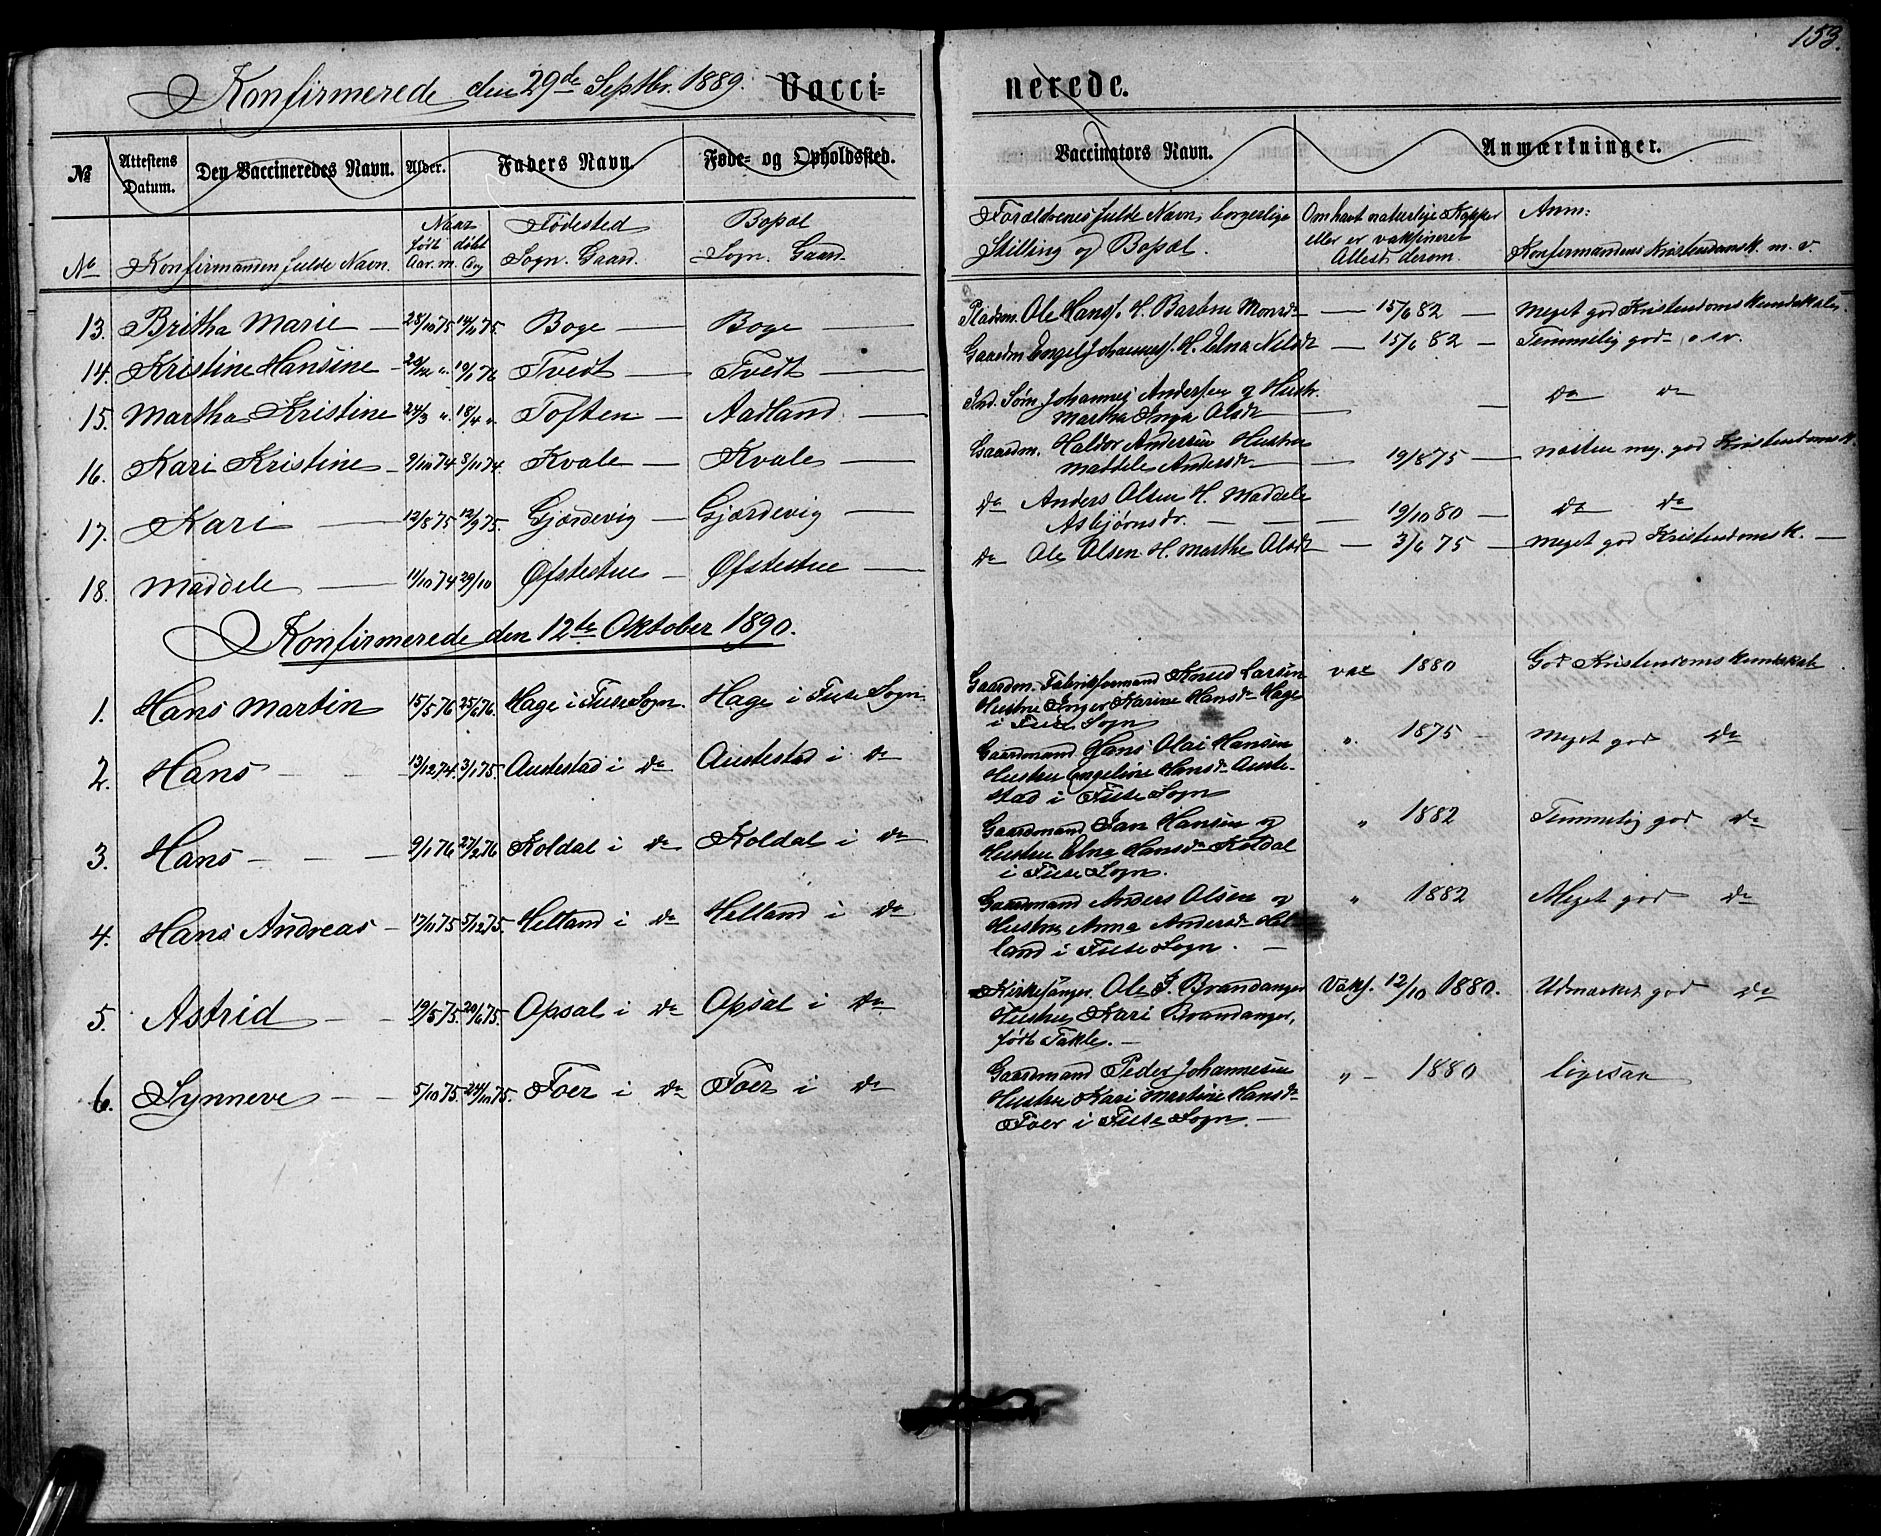 153.
Konfirmerede den 29de Septbr. 1889. Vacci= nerede.
№ Attestens Datum. Den Vaccineredes Navn. Alder. Faders Navn. Føde= og Opholdssted. Vaccinators Navn. Anmærkninger.
No Konfirmanden fulde Navn. Naar født Aar. m. døbt Fødested Sogn. Gaard. Bopæl Sogn. Gaard. Forældrenes fulde Navn, borgerlige Stilling og Bopæl. Om havt naturlige Kopper eller er vaksineret Attest derom. Anm: Konfirmandens Kristendomsk. m. v.
13. Britha Marie — 23/10 75 14/11 75. Boge — Boge — Pladsm. Ole Hanss. H. Barbru Monsdr — 15/6 82 — Meget god Kristendoms Kundskab.
14. Kristine Hansine — Tvedt — Tvedt — Gaardm Engel Johanness. H. Elna Nilsdr — 15/6 82 — Temmelig god
15. Martha Kristine 24/3 „ 18/4 „ Toften — Aadland. — Ind. Søm. Johannes Andersen og Hustr.
Martha Inga Olsdr — — do do
16. Kari Kristine — 9/10 74 8/11 74. Kvale — Kvale — Gaardm. Haldor Andersen Hustru
Maddele Andersdr — 19/8 75 — næsten meg. god Kristendomsk.
17. Kari — 12/8 75 12/9 75. Gjærdevig — Gjærdevig — do Anders Olsen H. Maddele
Asbjørnsdr. — — — 19/10 80 — do do
18. Maddele — 11/10 74 29/10 Øfstestue — Øfstestue — do Ole Olsen. H. Marthe Olsdr — 3/6 75 — Meget god Kristendomsk. —
Konfirmerede den 12te Oktober 1890.
1. Hans Martin 15/5 76 25/6 76. Hage i Fuse Sogn. Hage i Fuse Sogn. Gaardm. Fabrikformand Knud Larsen vax 1880 God Kristendoms Kundskab
Hustru Inger Karine Hansdr Hage
i Fuse Sogn
2. Hans — — 13/12 74. 3/1 75. Austestad i do Austestad i do Gaardmand Hans Olai Hansen „ 1875 — Meget god do
Hustru Engeline Hansdr Auste-
stad i Fuse Sogn
3. Hans — — — 9/1 76 27/2 76 Koldal i do Koldal i do Gaardmand Jan Hansen og „ 1882 Temmelig god do
Hustru Elna Hansdr Koldal
i Fuse Sogn.
4. Hans Andreas — 17/11 75 5/12 75. Helland i do Helland i do Gaardmand Anders Olsen og „ 1882 Meget god do
Hustru Anna Andersdr Hel-
land i Fuse Sogn. —
5. Astrid — — 19/5 75. 20/6 75. Opsal i do Opsal i do Kirkesanger Ole J. Brandanger Vaks. 12/10 1880. Udmærket god do
Hustru Kari Brandanger,
født Takle. —
6. Synneve — — 5/10 75. 24/10 75. Foer i do Foer i do Gaardmand Peder Johannesen „ — 1880 ligesaa
Hustru Kari Martine Hansdr
Foer i Fuse Sogn. —